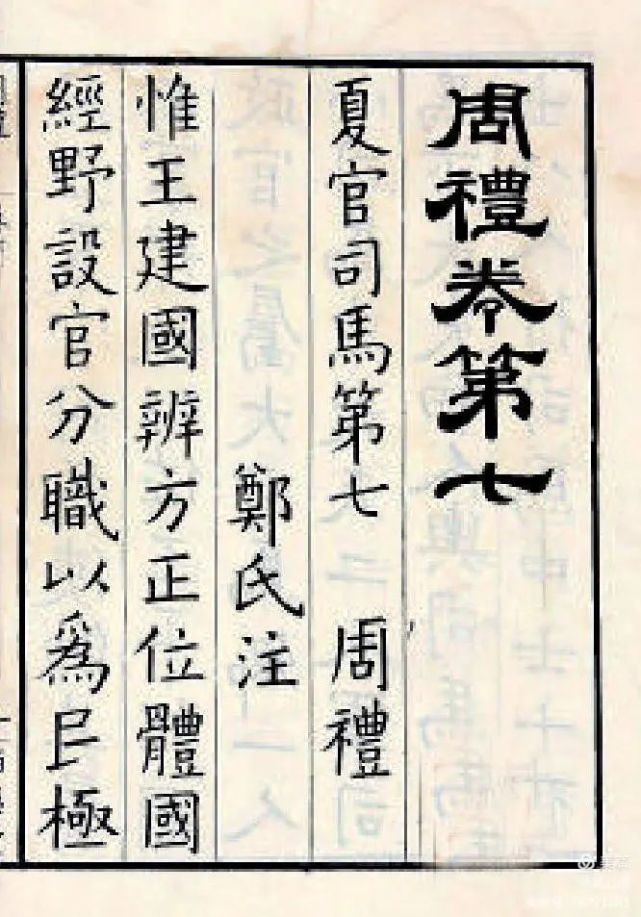 周禮卷第七
夏官司馬第七 周禮
鄭氏注
惟王建國辨方正位體國
經野設官分職以爲民極